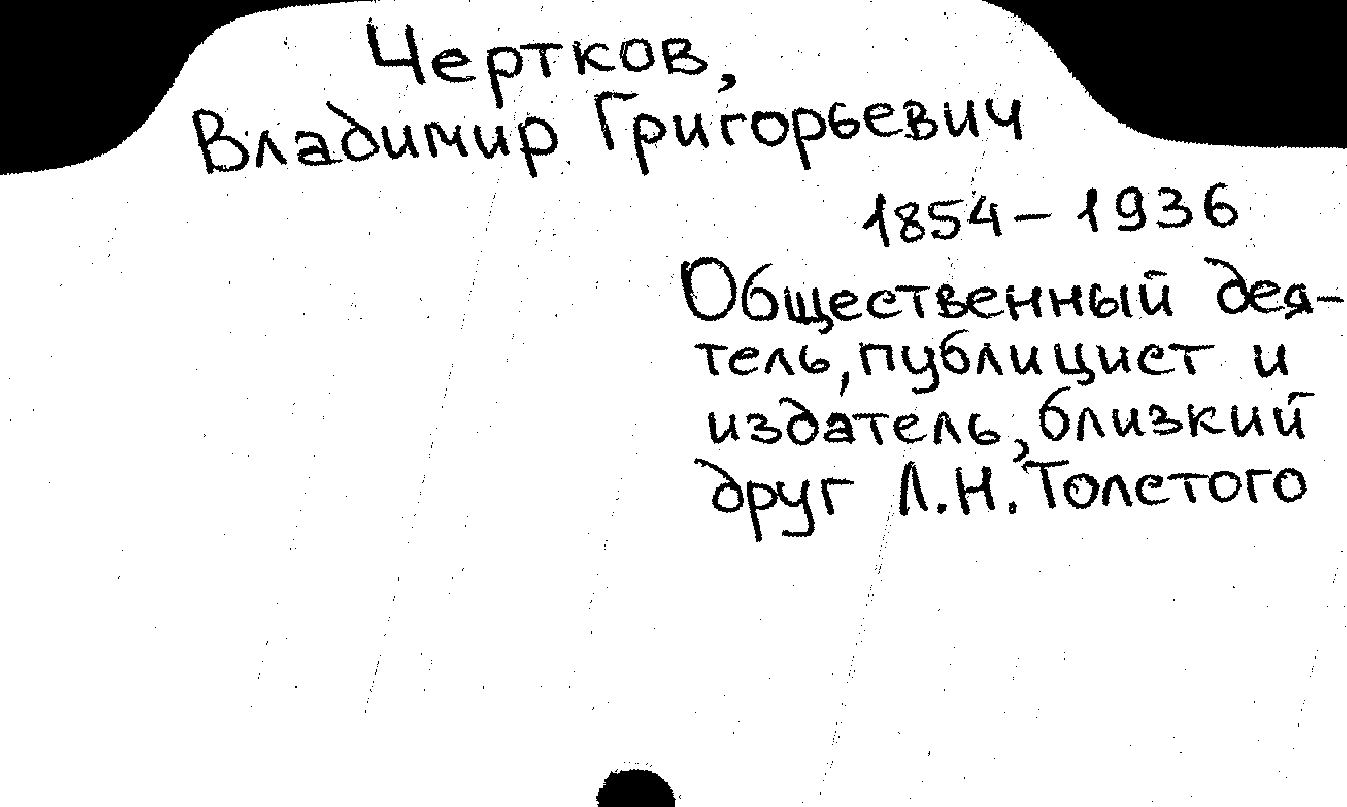 Чертков,
Владимир Григорьевич
1854 – 1936
Общественный дея-
тель, публицист и
издатель, близкий
друг Л.Н. Толстого